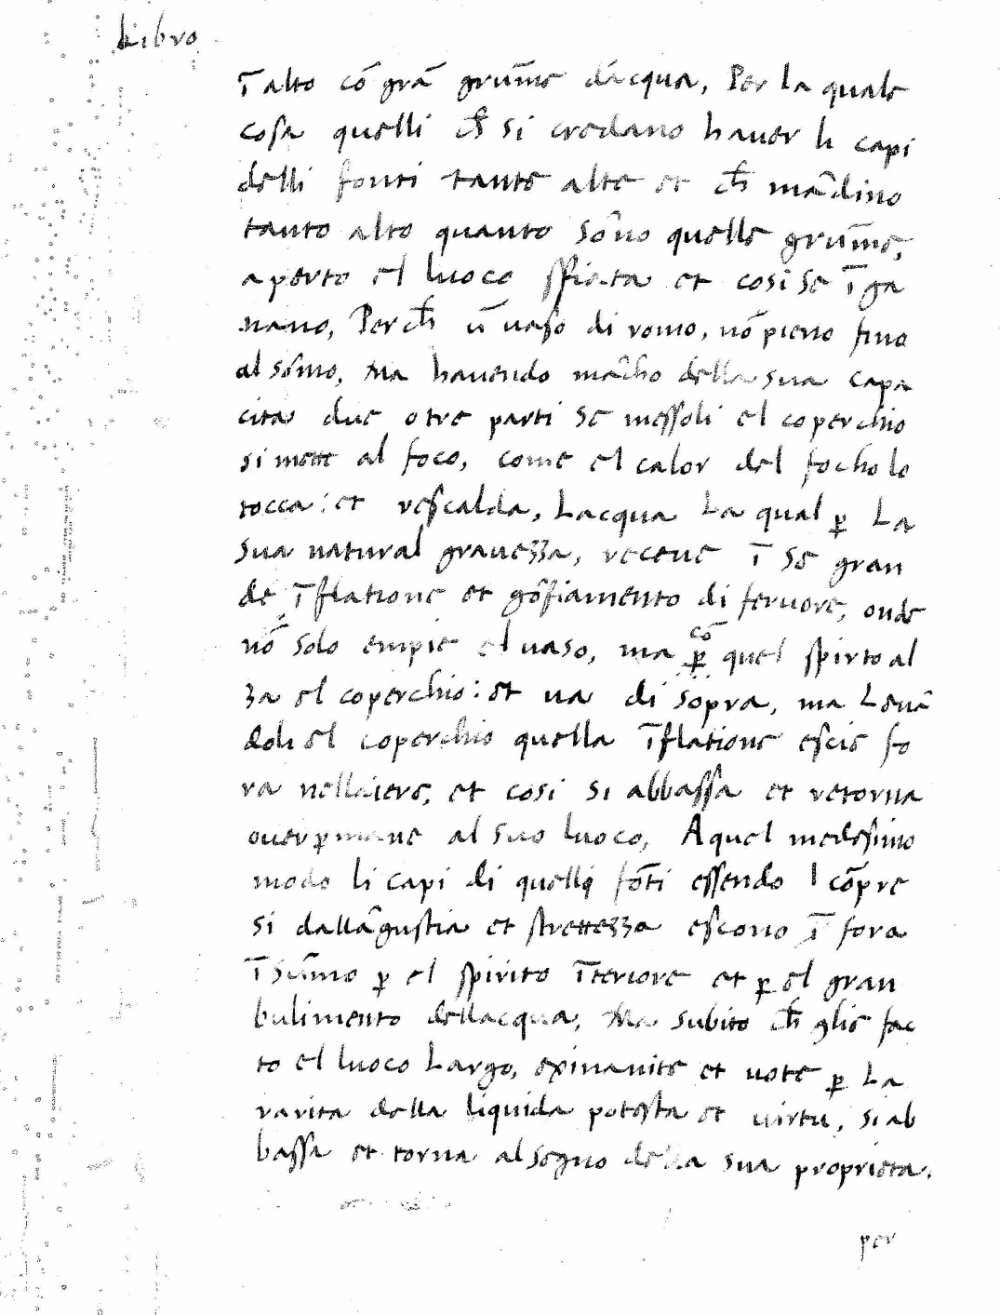 Libro
ī alto cō grā grum̄e dacqua, Per la quale
cosa quelli ch̄ si credano haver li capi
delli fonti tante alte et ch̄ mādino
tanto alto quanto sōno quelle grum̄e,
aperto el luoco sfiata et cosi se īga
nano, Perch̄ ū vaso di romo, nō pieno fino
al sōmo, Ma havendo mācho della sua capa
cita due o tre parti se messoli el coperchio
si mette al foco, come el calor del focho lo
tocca: et rescalda, Lacqua La qual ꝑ La
sua natural gravezza, receve ī se gran
de īflatione et gōfiamento di fervore, onde
nō solo empie el vaso, ma ꝑ cō quel spirto al
za el coperchio: et va di sopra, ma Levā
doli el coperchio quella īflatione escie fo
ra nellaiere, et cosi si abbassa et retorna
over ꝑmane al suo luoco, A quel medesimo
modo li capi di quelli fōti essendo l cōpre
si dallāgustia et strettezza escono ī fora
ī sum̄o ꝑ el spirito īteriore et ꝑ el gran
bulimento dellacqua, Ma subito ch̄ glie fac
to el luoco Largo, exinanite et vote ꝑ La
rarita della liquida potesta et virtu, si ab
bassa et torna al segno della sua proprieta.
per